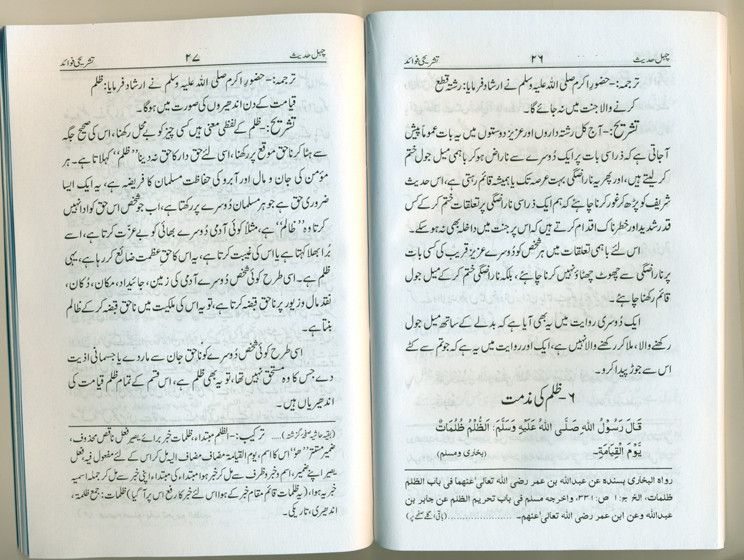 چہل حدیث ۲۶ تشریحی فوائد
ترجمہ:- حضورِ اکرم صلی اللہ علیہ وسلم نے ارشاد فرمایا: رشتہ قطع
کرنے والا جنت میں نہ جائے گا۔
تشریح:- آج کل رشتہ داروں اور عزیز دوستوں میں یہ بات عموماً پیش
آجاتی ہے کہ ذرا سی بات پر ایک دُوسرے سے ناراض ہوکر باہمی میل جول ختم
کرلیتے ہیں، اور پھر یہ ناراضگی بہت عرصہ تک یا ہمیشہ قائم رہتی ہے، اس حدیث
شریف کو پڑھ کر غور کرنا چاہئے کہ ہم ایک ذرا سی ناراضگی پر تعلقات ختم کرکے کس
قدر شدید اور خطرناک اقدام کرتے ہیں کہ اس پر جنت میں داخلہ بھی نہ ہوسکے۔
اس لئے باہمی تعلقات میں ہر شخص کو دُوسرے عزیز قریب کی کسی بات
پر ناراضگی سے چھوٹ چھٹاؤ نہیں کرنا چاہئے، بلکہ ناراضگی ختم کرکے میل جول
قائم رکھنا چاہئے۔
ایک دُوسری روایت میں یہ بھی آیا ہے کہ بدلے کے ساتھ میل جول
رکھنے والا، ملاکر رکھنے والا نہیں ہے، ایک اور روایت میں یہ ہے کہ جو تم سے کٹے
اس سے جوڑ پیدا کرو۔
۶- ظلم کی مذمت
قَالَ رَسُوْلُ اللهِ صَلَّى اللهُ عَلَيْهِ وَسَلَّمَ: اَلظُّلْمُ ظُلُمَاتٌ
يَّوْمَ الْقِيَامَةِ۔ (بخاری ومسلم)
رواه البخارى بسنده عن عبدالله بن عمر رضى الله تعالىٰ عنهما فى باب الظلم
ظلمات، الخ ج:۱ ص:۳۳۱، واخرجه مسلم فى باب تحريم الظلم عن جابر بن
عبدالله وعن ابن عمر رضى الله تعالىٰ عنهم۔ (باقی اگلے صفحے پر)
چہل حدیث ۲۷ تشریحی فوائد
ترجمہ:- حضورِ اکرم صلی اللہ علیہ وسلم نے ارشاد فرمایا: ظلم
قیامت کے دن اندھیروں کی صورت میں ہوگا۔
تشریح:- ظلم کے لفظی معنی ہیں کسی چیز کو بے محل رکھنا، اس کی صحیح جگہ
سے ہٹاکر ناحق موقع پر رکھنا، اسی لئے حق دار کا حق نہ دینا ”ظلم“ کہلاتا ہے۔ ہر
مؤمن کی جان و مال اور آبرو کی حفاظت مسلمان کا فریضہ ہے، یہ ایک ایسا
ضروری حق ہے جو ہر مسلمان دُوسرے پر رکھتا ہے، اب جو شخص اس حق کو ادا نہیں
کرتا وہ ”ظالم“ ہے، مثلاً کوئی آدمی دُوسرے بھائی کو بے عزّت کرتا ہے، اسے
بُرا بھلا کہتا ہے یا اس کی غیبت کرتا ہے، یہ اس کا حقِ عظمت ضائع کر رہا ہے، یہی
ظلم ہے۔ اسی طرح کوئی شخص دُوسرے آدمی کی زمین، جائیداد، مکان، دُکان،
نقد مال و زیور پر ناحق قبضہ کرتا ہے، تو یہ اس کی ملکیت میں ناحق قبضہ کرکے ظالم
بنتا ہے۔
اسی طرح کوئی شخص دُوسرے کو ناحق جان سے مار دے یا جسمانی اذیت
دے جس کا وہ مستحق نہیں تھا، تو یہ بھی ظلم ہے، اس قسم کے تمام ظلم قیامت کی
اندھیریاں ہیں۔
(بقیہ حاشیہ صفحہ گزشتہ)..... ترکیب:- الظلم مبتداء، ظلمات خبر برائے یصیر فعل ناقص محذوف،
ضمیر مستتر ”ھو“ اس کا اسم، یوم القیامة مضاف مضاف الیہ مل کر اس کے لئے مفعول فیہ، فعل
یصیر اپنے ضمیر، اسم وخبر وظرف سے مل کر خبر ہوا مبتداء کی، مبتداء اپنی خبر سے مل کر جملہ اسمیہ
خبریہ ہوا، (یہ ظلمات قائم مقام خبر کے ہوا اس لئے خبر کا رفع اس پر آگیا) ظلمات: جمع ظلمة،
اندھیری، تاریکی۔